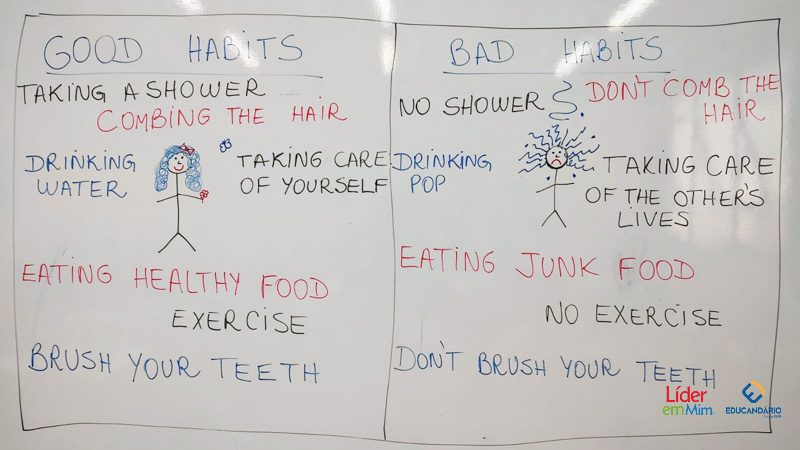 GOOD HABITS
TAKING A SHOWER
COMBING THE HAIR
DRINKING
WATER
TAKING CARE
OF YOURSELF
EATING HEALTHY FOOD
EXERCISE
BRUSH YOUR TEETH
BAD HABITS
NO SHOWER
DON'T COMB THE
HAIR
DRINKING
POP
TAKING CARE
OF THE OTHER'S
LIVES
EATING JUNK FOOD
NO EXERCISE
DON'T BRUSH YOUR TEETH
Líder
em Mim
EDUCANDÁRIO